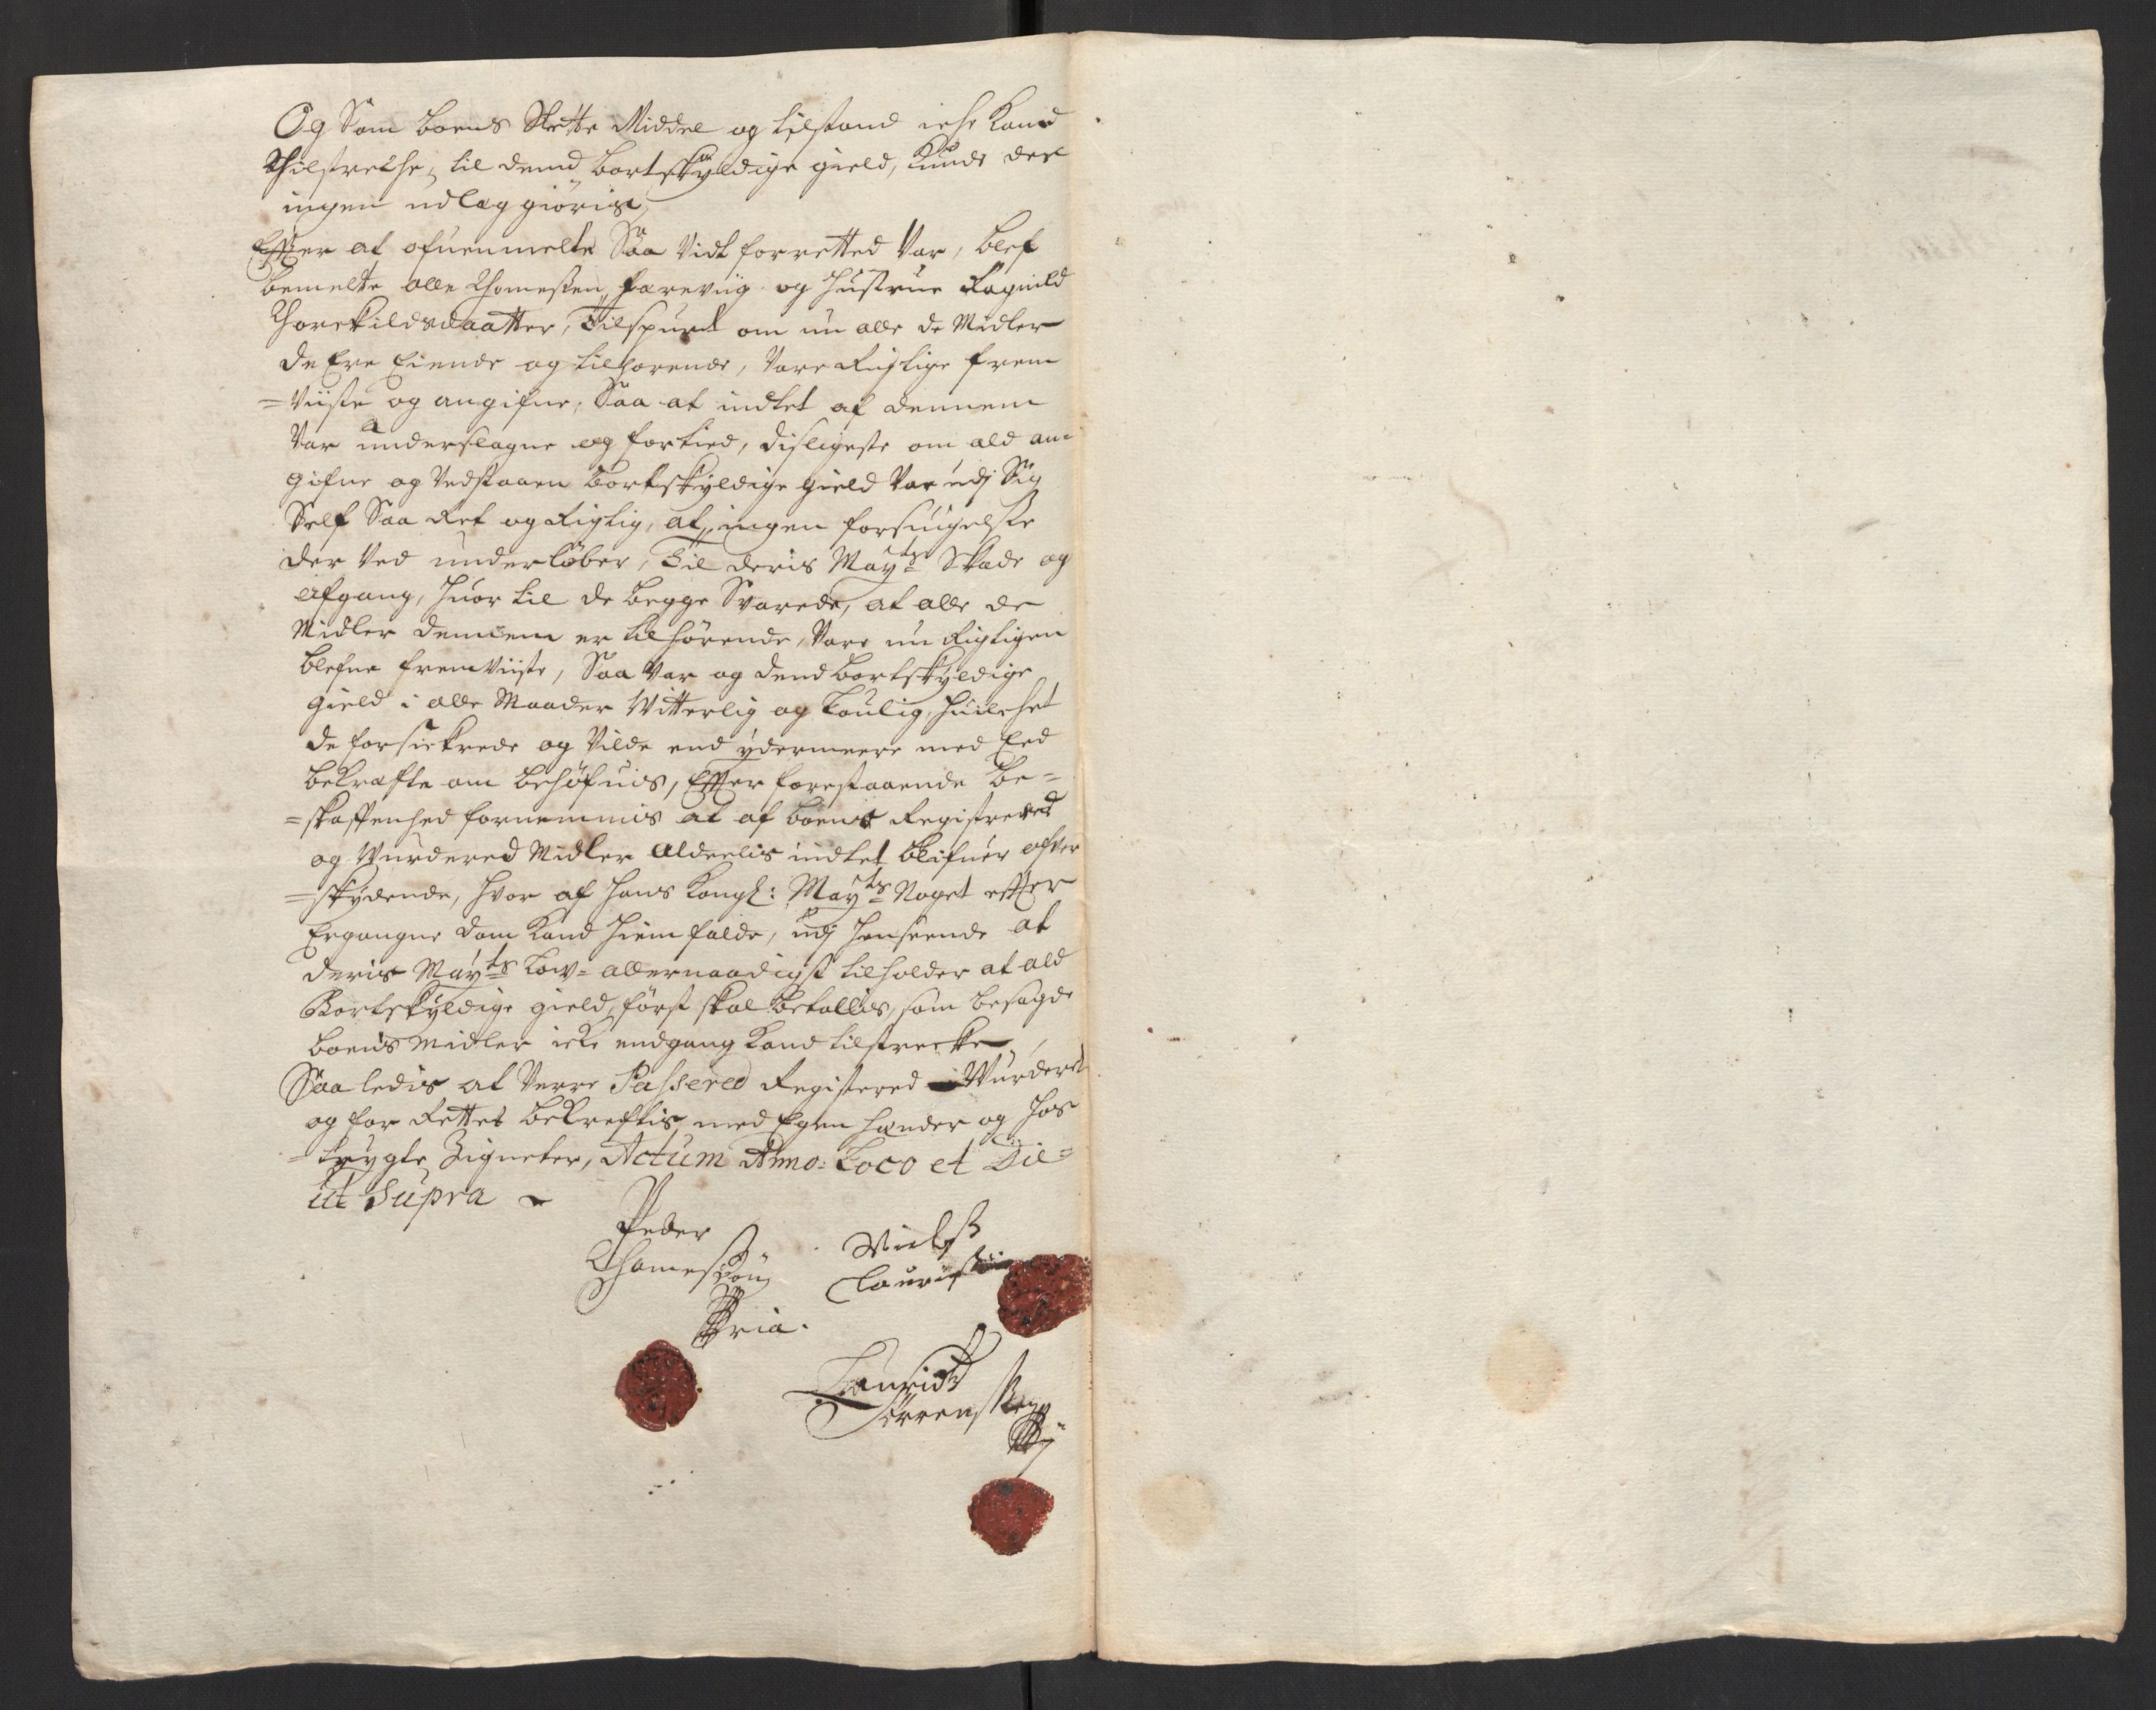 Og Som boens Slette Middel og tilstand iche Kand
tilstreche, til dend bortskyldige gield, Kunde der
ingen udlæg giöris,
Effter at ofuenmelte Saa Vidt forretted Var, blef
bemelte olle Thomesen Farevüg og hustrue Ragnild
Thorekildsdaatter, Tilspurt om nu alle de Midler
de Ere Eiende og tilhørende, Vare Rigtige frem
=Viiste og angifne, Saa at indtet af dennem
Var underslagne og fortied, disligeste om ald an-
gifne og Vedstaaen bortskyldige gield Var udj Sig
Self Saa Ret og Rigtig, at ingen forsuigelse
der Ved underløber, Til deris Mayts Skade og
Afgang, huor til de begge Svarede, at alle de
Midler dennem er tilhörende, Vare nu Rigtigen
blefne fremViiste, Saa Var og dend bortskyldige
gield i alle Maader Witterlig og huilchet
de forsickrede og Vilde end ydermeere med Eed
bekræfte om behøfues, Effter forestaaende be=
=skaffenhed fornemmis at af boens Registrered
og Wurdered Midler aldeelis indtet blifuer ofver
=skydende, hvor af hans Kongl: Mayts Noget effter
Ergangne dom Kand hiemfalde, udj henseende at
deris Mayts Low= allernaadigst tilholder at ald
Bortskyldige gield, först skal betallis, som besagde
boens Midler icke endgang Kand tilstrecke,
Saaledis at Verre Passered Registered Wurderet
og for Rettet bekreftis med Egen hænder og hos
=trygte Zigneter, Actum Anno: Loco et Die=
ut Supra
Peder
Thomesøn
Niels
Lauridtz
Sørrensen